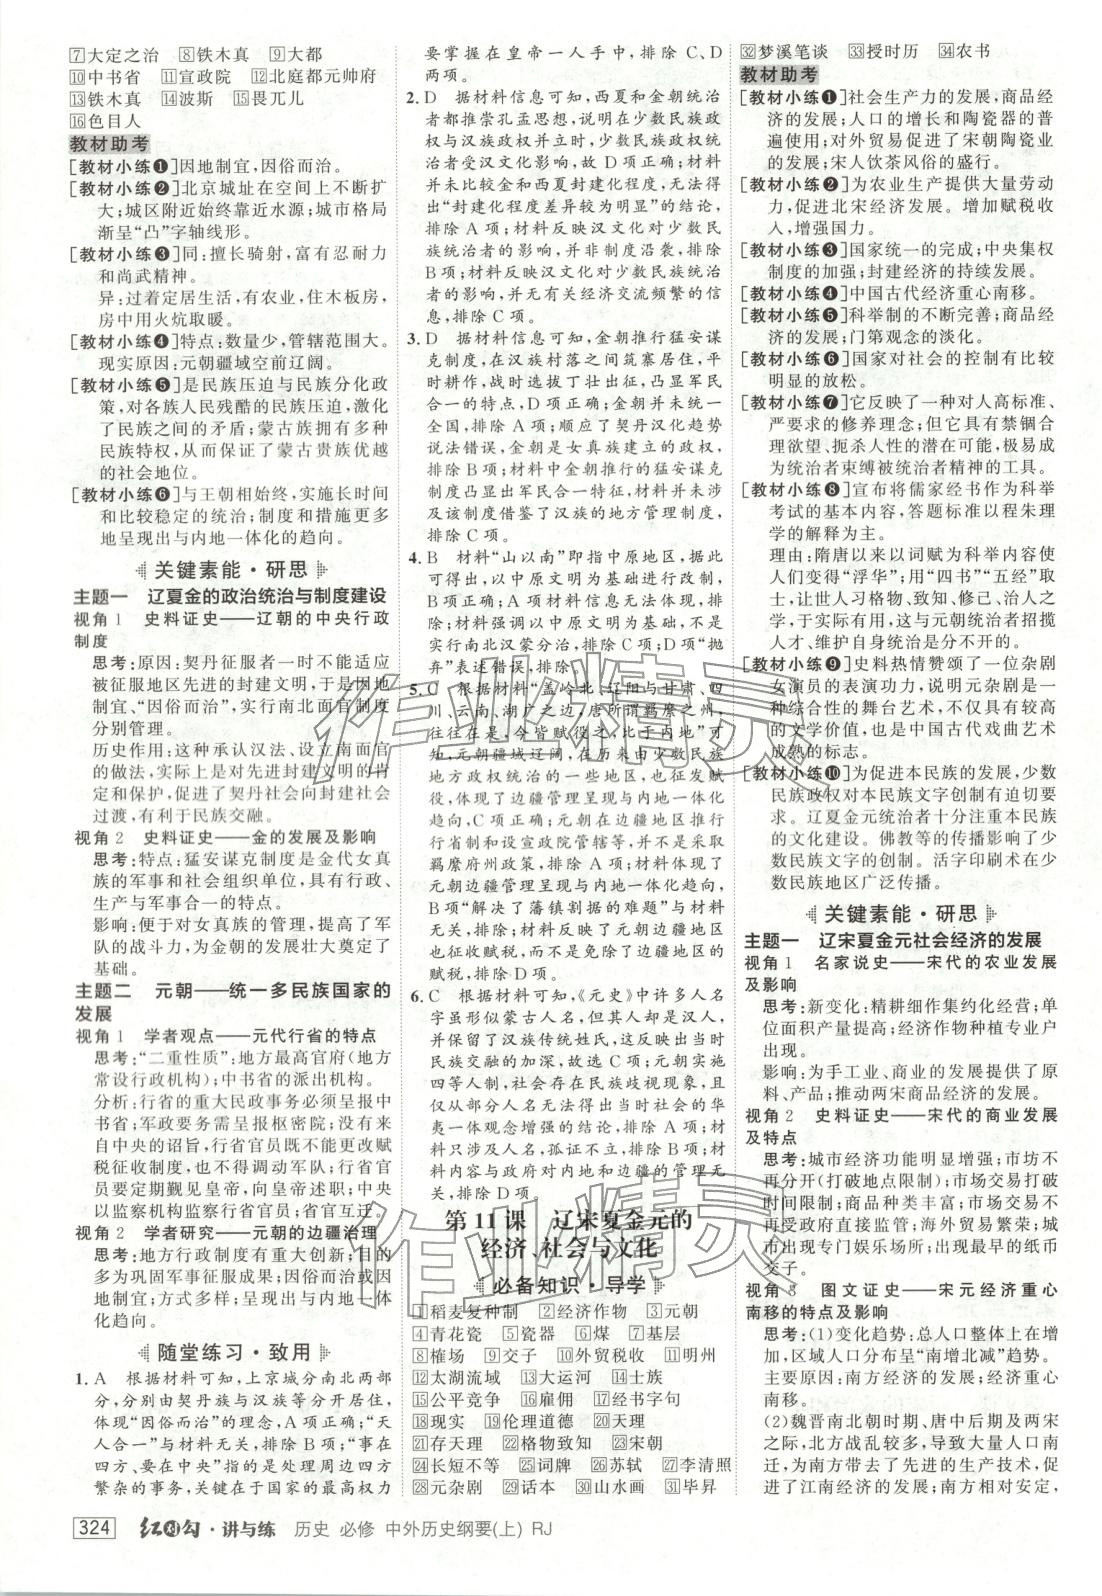 ⑦大定之治　⑧铁木真　⑨大都
⑩中书省　⑪宣政院　⑫北庭都元帅府
⑬铁木真　⑭波斯　⑮畏兀儿
⑯色目人
教材助考
[教材小练❶]因地制宜，因俗而治。
[教材小练❷]北京城址在空间上不断扩
大；城区附近始终靠近水源；城市格局
渐呈“凸”字轴线形。
[教材小练❸]同：擅长骑射，富有忍耐力
和尚武精神。
异：过着定居生活，有农业，住木板房，
房中用火炕取暖。
[教材小练❹]特点：数量少，管辖范围大。
现实原因：元朝疆域空前辽阔。
[教材小练❺]是民族压迫与民族分化政
策，对各族人民残酷的民族压迫，激化
了民族之间的矛盾；蒙古族拥有多种
民族特权，从而保证了蒙古贵族优越
的社会地位。
[教材小练❻]与王朝相始终，实施长时间
和比较稳定的统治；制度和措施更多
地呈现出与内地一体化的趋向。
关键素能·研思
主题一　辽夏金的政治统治与制度建设
视角1　史料证史——辽朝的中央行政
制度
思考：原因：契丹征服者一时不能适应
被征服地区先进的封建文明，于是因地
制宜、“因俗而治”，实行南北面官制度
分别管理。
历史作用：这种承认汉法、设立南面官
的做法，实际上是对先进封建文明的肯
定和保护，促进了契丹社会向封建社会
过渡，有利于民族交融。
视角2　史料证史——金的发展及影响
思考：特点：猛安谋克制度是金代女真
族的军事和社会组织单位，具有行政、
生产与军事合一的特点。
影响：便于对女真族的管理，提高了军
队的战斗力，为金朝的发展壮大奠定了
基础。
主题二　元朝——统一多民族国家的
发展
视角1　学者观点——元代行省的特点
思考：“二重性质”：地方最高官府（地方
常设行政机构）；中书省的派出机构。
分析：行省的重大民政事务必须呈报中
书省；军政要务需呈报枢密院；没有来
自中央的诏旨，行省官员既不能更改赋
税征收制度，也不得调动军队；行省官
员要定期觐见皇帝，向皇帝述职；中央
以监察机构监察行省官员；省官互迁。
视角2　学者研究——元朝的边疆治理
思考：地方行政制度有重大创新；目的
多为巩固军事征服成果；因俗而治或因
地制宜；方式多样；呈现出与内地一体
化趋向。
随堂练习·致用
1. A　根据材料可知，上京城分南北两部
分，分别由契丹族与汉族等分开居住，
体现“因俗而治”的理念，A项正确；“天
人合一”与材料无关，排除B项；“事在
四方、要在中央”指的是处理周边四方
繁杂的事务，关键在于国家的最高权力
要掌握在皇帝一人手中，排除C、D
两项。
2. D　据材料信息可知，西夏和金朝统治
者都推崇孔孟思想，即在少数民族政
权与汉族政权并立时，少数民族政权
统治者受汉文化影响，故D项正确；材料
并未比较金和西夏封建化程度，无法得
出“封建化程度差异较为明显”的结论，
排除A项；材料反映汉文化对少数民
族统治者的影响，并非制度沿袭，排除
B项；材料反映汉文化对少数民族统治
者的影响，并无有关经济交流频繁的信
息，排除C项。
3. D　据材料信息可知，金朝推行猛安谋
克制度，在汉族村落之间筑寨居住，平
时耕作，战时选丁壮出征，凸显军民
合一的特点，D项正确；金朝并未统一
全国，排除A项；顺应了契丹汉化趋势
说法错误，金朝是女真族建立的政权，
排除B项；材料中金朝推行的猛安谋克
制度凸显出军民合一特征，材料并未涉
及该制度借鉴了汉族的地方管理制度，
排除C项。
4. B　材料“山以南”即指中原地区，据此
可得出，以中原文明为基础进行改制，
B项正确；A项材料信息无法体现，排
除；材料强调以中原文明为基础，不是
实行南北汉蒙分治，排除C项；D项“抛
弃”表述错误，排除。
5. C　根据材料“盖岭北、辽阳与甘肃、四
川、云南、湖广之边，唐所谓羁縻之州，
往往在是，今皆赋役之，比于内地”可
知，元朝疆域辽阔，在历来由少数民族
地方政权统治的一些地区，也征发赋
役，体现了边疆管理呈现与内地一体化
趋向，故选C项；元朝在边疆地区推行
行省制和设宣政院管辖等制度，并不是采取
羁縻府州政策，排除A项；材料体现了
元朝边疆管理呈现与内地一体化趋向，
B项“解决了藩镇割据的难题”与材料
无关，排除B项；材料反映了元朝边疆地区
也征收赋税，而不是免除了边疆地区的
赋税，排除D项。
6. C　根据材料可知，《元史》中许多人名
字虽形似蒙古人名，但其人却是汉人，
并保留了汉族传统姓氏，这反映出当时
民族交融的加深，故选C项；元朝实施
四等人制，社会存在民族歧视现象，且
仅从部分人名无法得出当时社会的华
夷一体观念增强的结论，排除A项；材
料只涉及人名，孤证不立，排除B项；材
料内容与政府对内地和边疆的管理无
关，排除D项。
第11课　辽宋夏金元的
经济、社会与文化
必备知识·导学
①稻麦复种制　②经济作物　③元朝
④青花瓷　⑤瓷器　⑥煤　⑦基层
⑧榷场　⑨交子　⑩外贸税收　⑪明州
⑫太湖流域　⑬大运河　⑭士族
⑮公平竞争　⑯雇佣　⑰经书字句
⑱现实　⑲伦理道德　⑳天理
㉑存天理　㉒格物致知　㉓宋朝
㉔长短不等　㉕宋词　㉖苏轼　㉗李清照
㉘元杂剧　㉙话本　㉚山水画　㉛毕昇
㉜梦溪笔谈　㉝授时历　㉞农书
教材助考
[教材小练❶]社会生产力的发展，商品经
济的发展；人口的增长和陶瓷器的普
遍使用；对外贸易促进了宋朝陶瓷业
的发展；宋人饮茶风俗的盛行。
[教材小练❷]为农业生产提供大量劳动
力，促进北宋经济发展。增加赋税收
入，增强国力。
[教材小练❸]国家统一的完成；中央集权
制度的加强；封建经济的持续发展。
[教材小练❹]中国古代经济重心南移。
[教材小练❺]科举制的不断完善；商品经
济的发展；门第观念的淡化。
[教材小练❻]国家对社会的控制有比较
明显的放松。
[教材小练❼]它反映了一种对人高标准、
严要求的修养理念；但它具有禁锢合
理欲望、扼杀人性的潜在可能，极易成
为统治者束缚被统治者精神的工具。
[教材小练❽]宣布将儒家经书作为科举
考试的基本内容，答题标准以程朱理
学的解释为主。
理由：隋唐以来以词赋为科举内容使
人们变得“浮华”；用“四书”“五经”取
士，让世人习格物、致知、修己、治人之
学，于实际有用，这与元朝统治者招揽
人才、维护自身统治是分不开的。
[教材小练❾]史料热情赞颂了一位杂剧
女演员的表演功力，说明元杂剧是一
种综合性的舞台艺术，不仅具有较高
的文学价值，也是中国古代戏曲艺术
成熟的标志。
[教材小练❿]为促进本民族的发展，少数
民族政权对本民族文字创制有迫切要
求。辽夏金元统治者十分注重本民族
的文化建设。佛教等的传播影响了少
数民族文字的创制。活字印刷术在少
数民族地区广泛传播。
关键素能·研思
主题一　辽宋夏金元社会经济的发展
视角1　名家说史——宋代的农业发展
及影响
思考：新变化：精耕细作集约化经营；单
位面积产量提高；经济作物种植专业户
出现。
影响：为手工业、商业的发展提供了原
料、产品；推动两宋商品经济的发展。
视角2　史料证史——宋代的商业发展
及特点
思考：城市经济功能明显增强；市坊不
再分开（打破地点限制）；交易时间打破
时间限制；商品种类丰富；市场交易不
再受政府直接监管；海外贸易繁荣；城市
出现专门娱乐场所；出现最早的纸币
交子。
视角3　图文证史——宋元经济重心
南移的特点及影响
思考：(1)变化趋势：总人口整体上在增
加，区域人口分布呈“南增北减”趋势。
主要原因：南方经济的发展；经济重心
南移。
(2)魏晋南北朝时期、唐中后期及两宋
之际，北方战乱较多，导致大量人口南
迁，为南方带去了先进的生产技术，促
进了江南经济的发展；南方相对安定，
324　红对勾·讲与练　历史　必修　中外历史纲要(上)　RJ
作业精灵
作业精灵